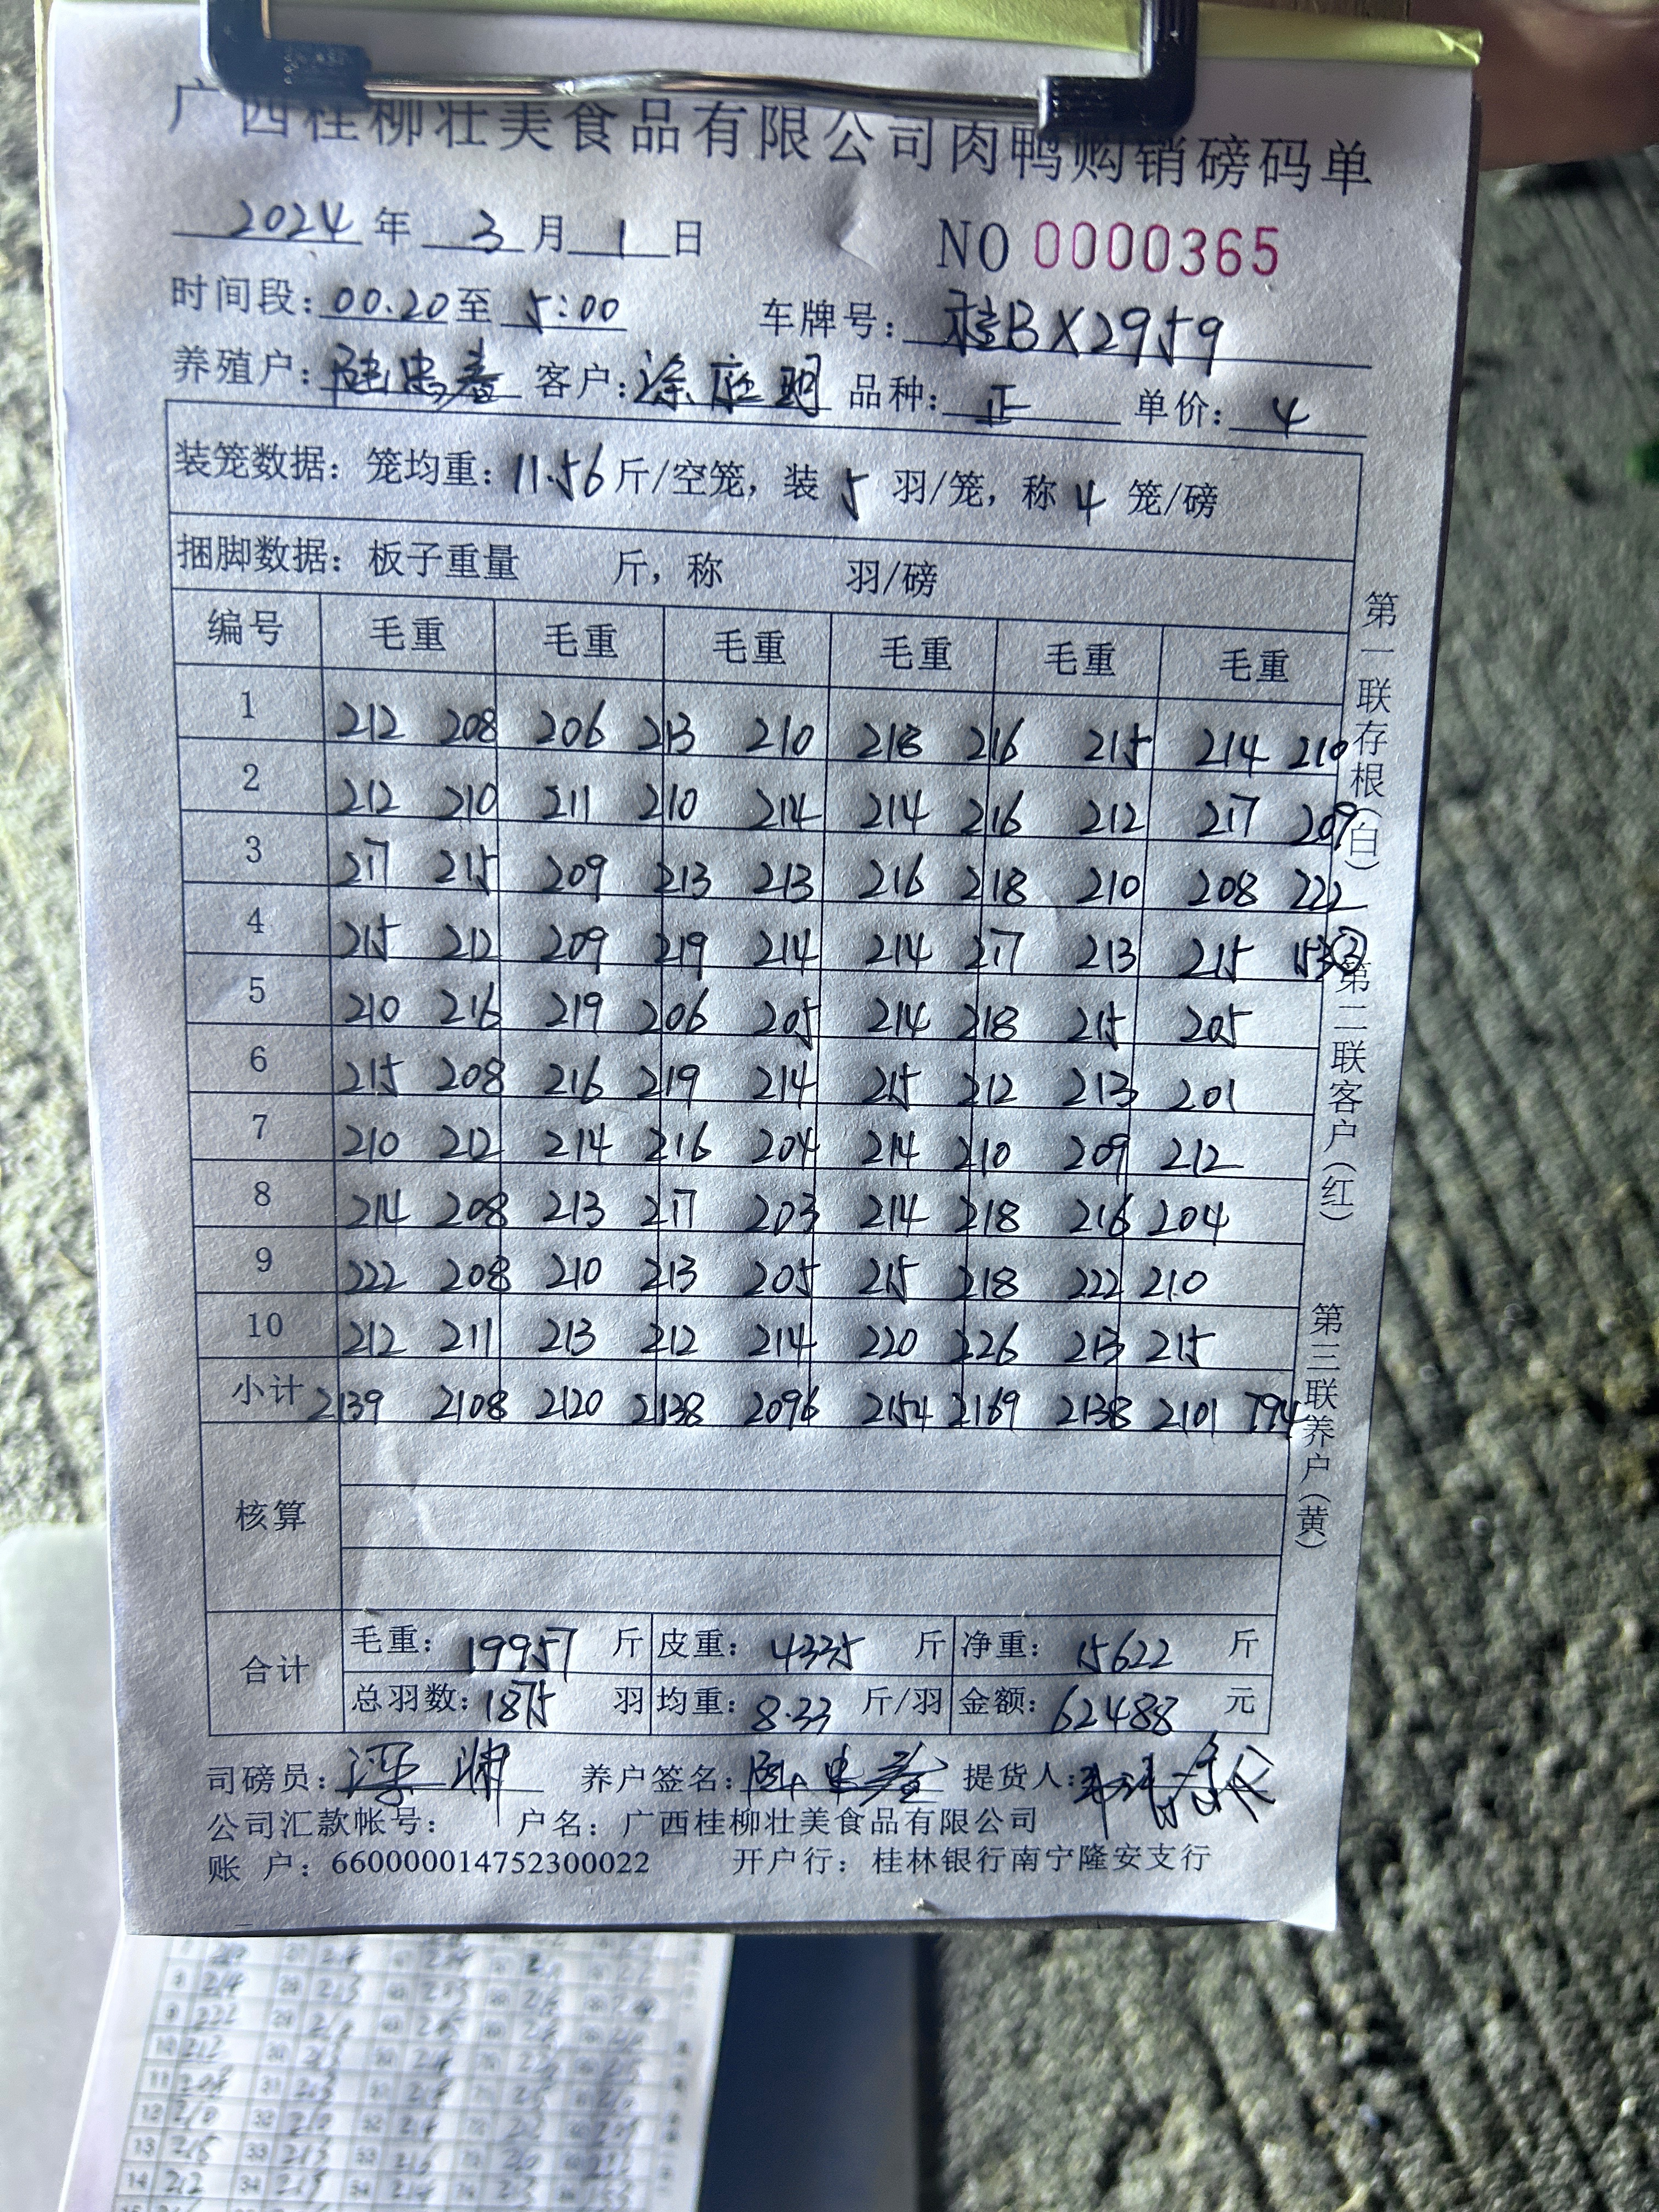 广西桂柳壮美食品有限公司肉鸭购销磅码单
2024年 3月1日 NO 0000365
时间段：00.20至5:00 车牌号：桂BX2959
养殖户：陆忠春 客户：涂应明 品种：正 单价：4
装笼数据：笼均重：11.56斤/空笼，装 5 羽/笼，称 4 笼/磅
捆脚数据：板子重量 斤，称 羽/磅
编号 毛重 毛重 毛重 毛重 毛重 毛重
1 212 208 206 213 210 218 216 215 214 210
2 212 210 211 210 214 214 216 212 217 209
3 217 215 209 213 213 216 218 210 208 222
4 215 212 209 219 214 214 217 213 215 153③
5 210 216 219 206 205 214 218 215 205
6 215 208 216 219 214 215 212 213 201
7 210 212 214 216 204 214 210 209 212
8 214 208 213 217 203 214 218 216 204
9 222 208 210 213 205 215 218 222 210
10 212 211 213 212 214 220 226 213 215
小计 2139 2108 2120 2138 2096 2154 2169 2138 2101 794
核算
合计 毛重：19957 斤 皮重：4335 斤 净重：15622 斤
总羽数：1875 羽 均重：8.33 斤/羽 金额：62488 元
司磅员： 养户签名：陆忠春 提货人：
公司汇款帐号： 户名：广西桂柳壮美食品有限公司
账 户：660000014752300022 开户行：桂林银行南宁隆安支行
第一联存根（白） 第二联客户（红） 第三联养户（黄）